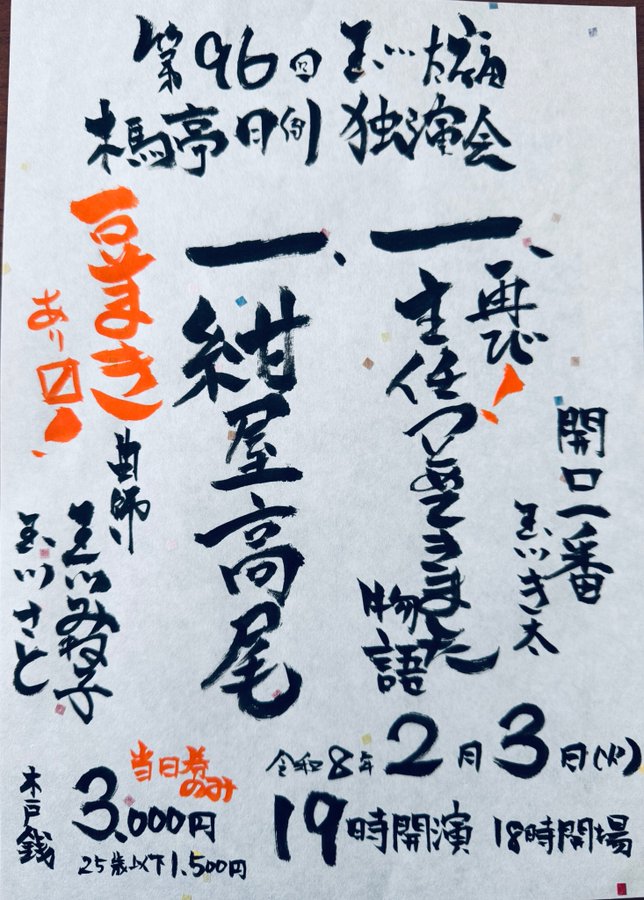 第96回 玉川太福
木馬亭月例 独演会
開口一番
玉川き太
一、再び!
主任
物語
一、紺屋高尾
豆まき
あり〼!
曲師
玉川みね子
玉川さと
令和8年 2月3日(火)
19時開演 18時開場
当日券
のみ
木戸銭
3,000円
25歳以下1,500円